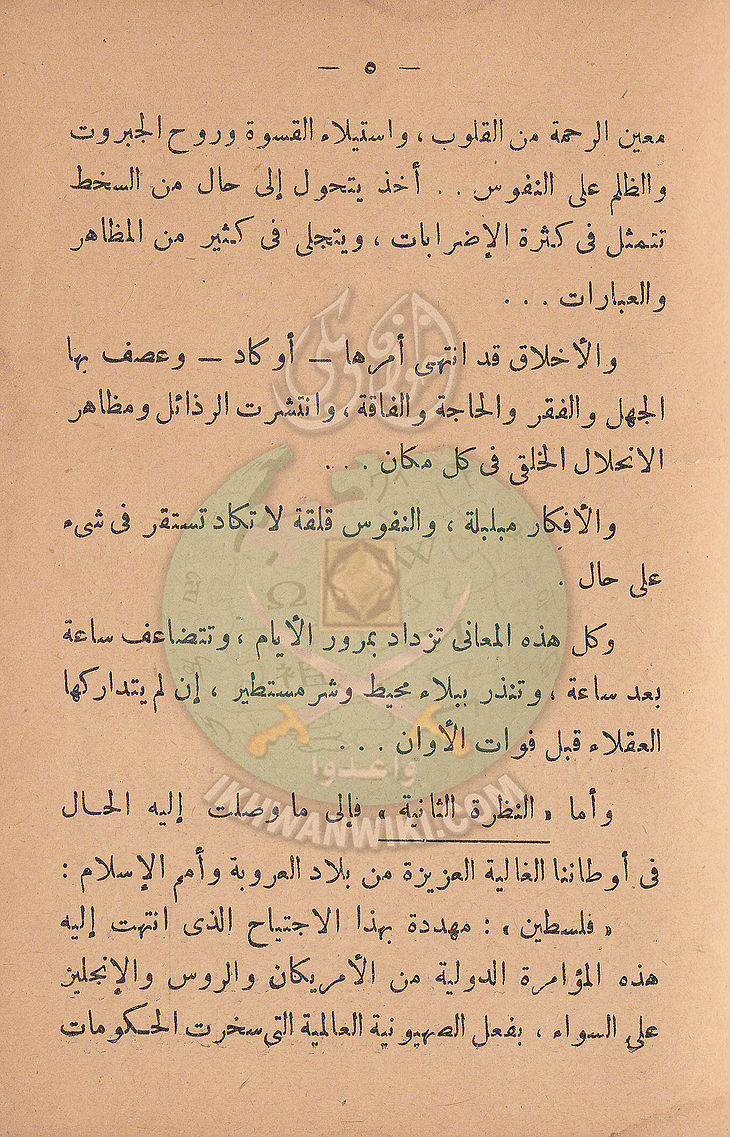 — ٥ —
معين الرحمة من القلوب ، واستيلاء القسوة وروح الجبروت
والظلم على النفوس . . أخذ يتحول إلى حال من السخط
تتمثل فى كثرة الإضرابات ، ويتجلى فى كثير من المظاهر
والعبارات . . .
والأخلاق قد انتهى أمرها — أو كاد — وعصف بها
الجهل والفقر والحاجة والفاقة ، وانتشرت الرذائل ومظاهر
الانحلال الخلقى فى كل مكان . . .
والأفكار مبلبلة ، والنفوس قلقة لا تكاد تستقر فى شىء
على حال .
وكل هذه المعانى تزداد بمرور الأيام ، وتتضاعف ساعة
بعد ساعة ، وتنذر ببلاء محيط وشر مستطير ، إن لم يتداركها
العقلاء قبل فوات الأوان . . .
وأما « النظرة الثانية » فإلى ما وصلت إليه الحال
فى أوطاننا الغالية العزيزة من بلاد العروبة وأمم الإسلام :
« فلسطين » : مهددة بهذا الاجتياح الذى انتهت إليه
هذه المؤامرة الدولية من الأمريكان والروس والإنجليز
على السواء ، بفعل الصهيونية العالمية التى سخرت الحكومات
واعدوا
IKHWANWIKI.COM